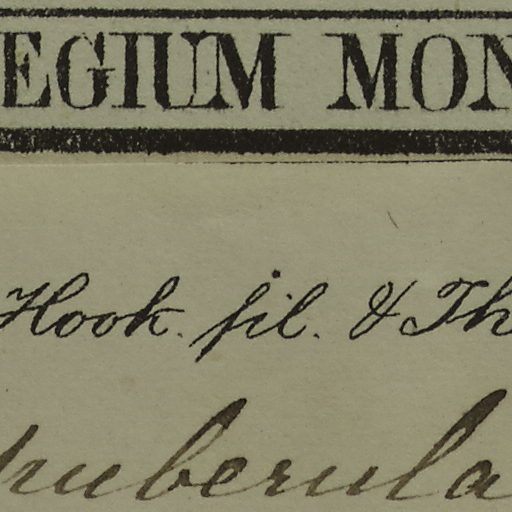 EGIUM MON
Hook. fil. & Th
puberula